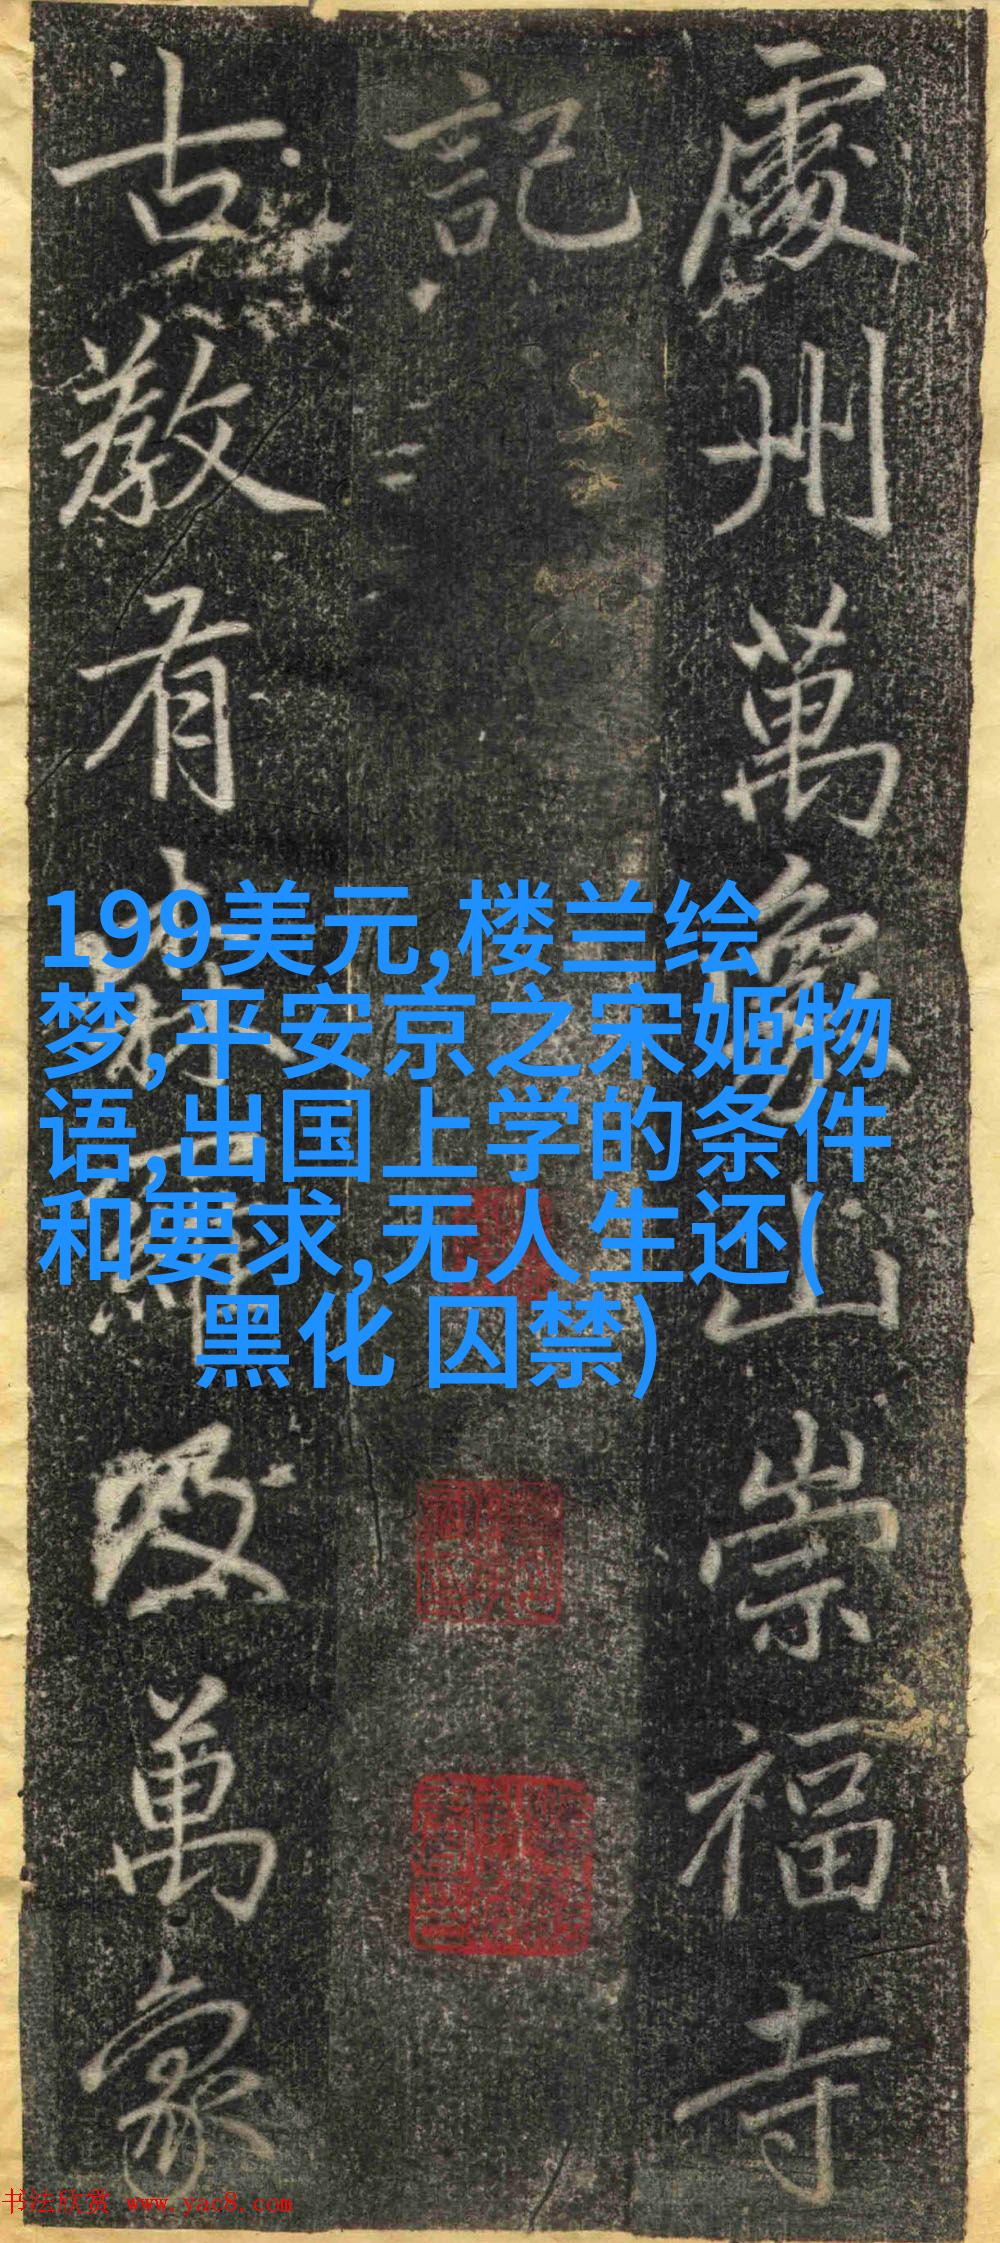 處州萬象山崇福寺
記
古教有森羅及萬象
199美元,楼兰绘
梦,平安京之宋姬物
语,出国上学的条件
和要求,无人生还(
黑化 囚禁)
书法欣赏 www.yac8.com